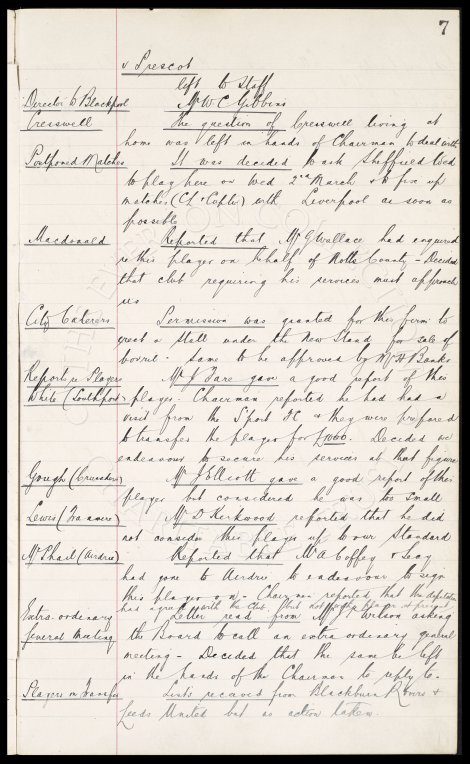 7
v Prescot
left to Staff
Director to Blackpool Mr W C Gibbins
Cresswell The question of Cresswell living at
home was left in hands of Chairman to deal with
Postponed Matches It was decided to ask Sheffield Wed
to play here on Wed 2nd March & to fix up
matches (Cl & Coptn) with Liverpool as soon as
possible
Macdonald Reported that Mr G Wallace had enquired
re this player on behalf of Notts County - Decided
that club requiring his services must approach
us
City Caterers Permission was granted for this firm to
erect a Stall under the New Stand for sale of
bovril - same to be approved by W H Banks
Reports re Players Mr J Fare gave a good report of this
White (Southport) player. Chairman reported he had had a
visit from the Sport FC & they were prepared
to transfer the player for £1000. Decided we
endeavour to secure his services at that figure
Gough (Crusaders) Mr J Elliott gave a good report of this
player but considered he was too small
Lewis (Tranmere) Mr D Kirkwood reported that he did
not consider this player up to our Standard
McPhail (Airdrie) Reported that M A Coffey & Secy
had gone to Airdrie to endeavour to sign
this player on - Chairman reported that the deputation
had agreed with the Club, but not with player at present
Extra-ordinary Letter read from Wilson asking
General Meeting the Board to call an extra ordinary general
meeting - Decided that the same be left
in the hands of the Chairman to reply to -
Players on Transfer Lists received from Blackburn Rovers &
Leeds United but no action taken.